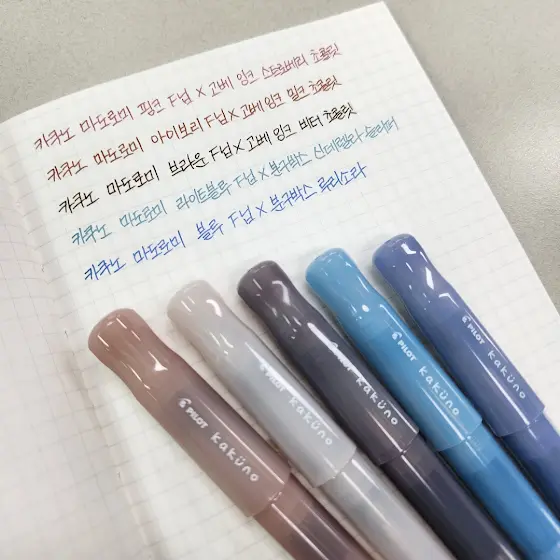 카쿠노 마도로미 핑크 F닙 X 고베 잉크 스트로베리 초콜릿
카쿠노 마도로미 아이보리 F닙 X 고베 잉크 밀크 초콜릿
카쿠노 마도로미 브라운 F닙 X 고베 잉크 비터 초콜릿
카쿠노 마도로미 라이트블루 F닙 X 문구박스 신데렐라 슬리퍼
카쿠노 마도로미 블루 F닙 X 문구박스 루리소라
PILOT kaküno
PILOT kaküno
PILOT kaküno
PILOT kaküno
PILOT kaküno